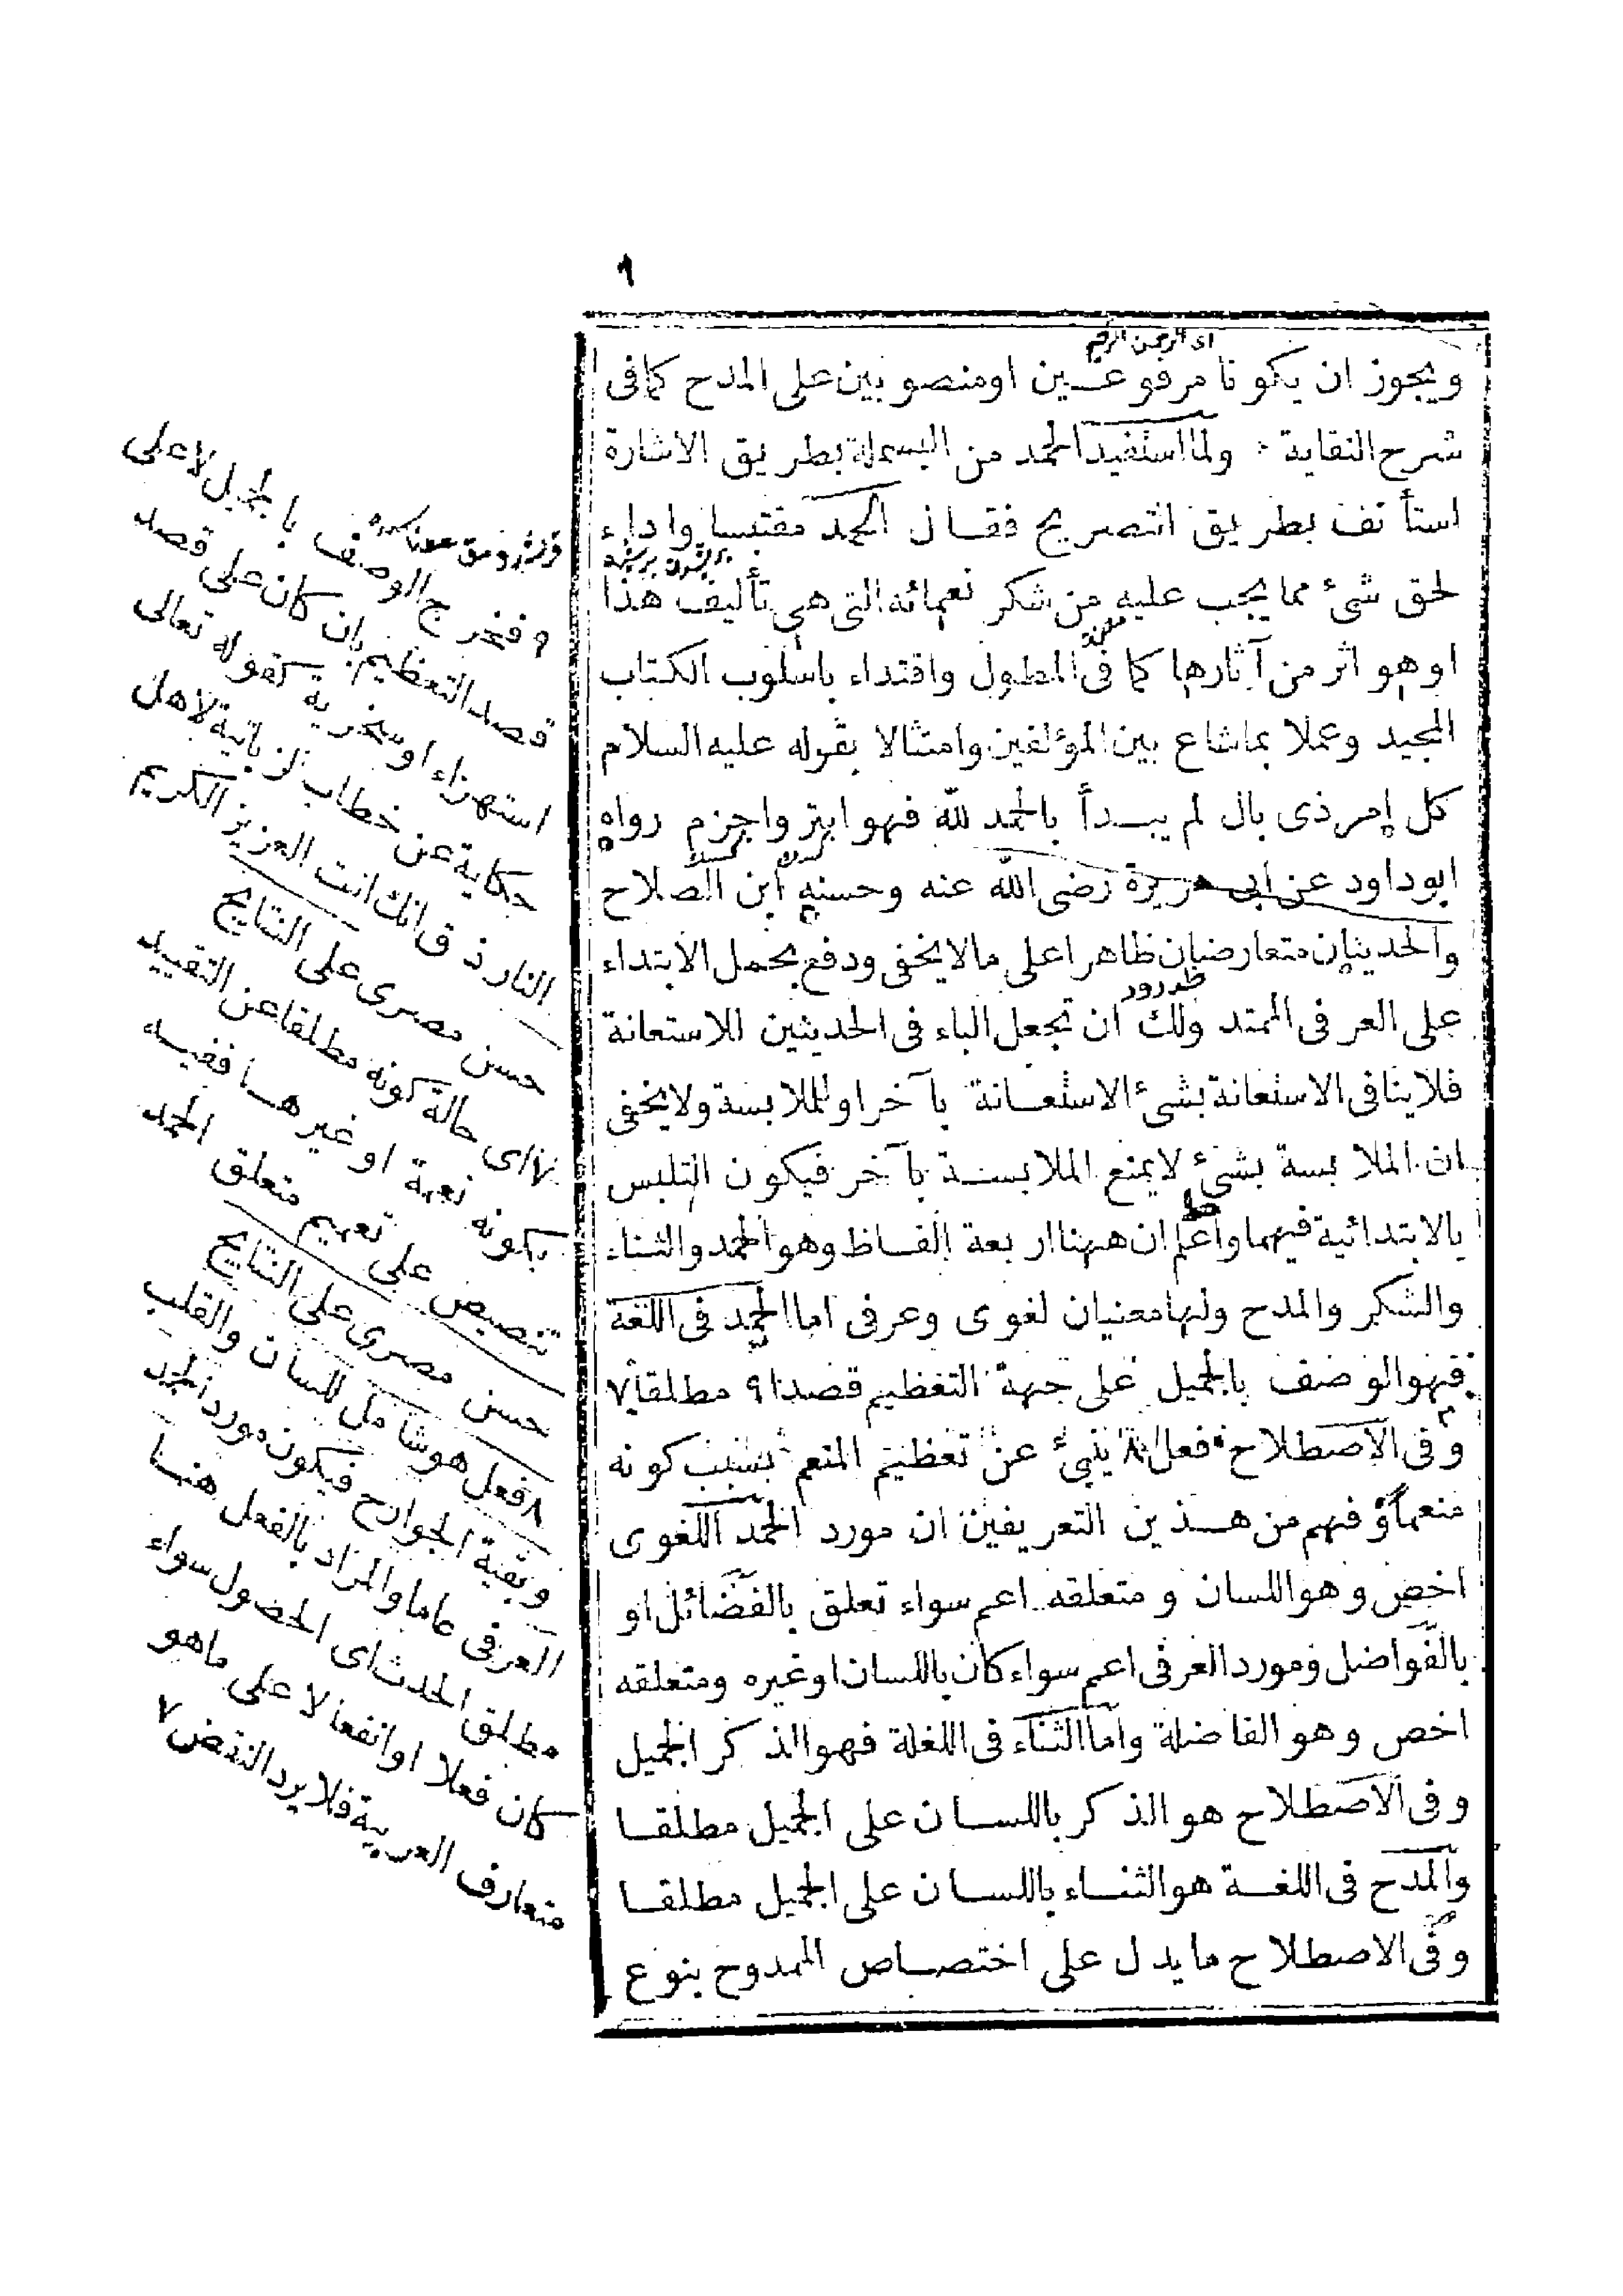 ٦
اى الرحمن الرحيم
ويجوز ان يكونا مرفوعين اومنصوبين على المدح كمافى
شرح النقاية ولمااستفيد الحمد من البسملة بطريق الاشارة
استأنف بطريق التصريح فقال الحمد مقتبسا واداء
لحق شئ مما يجب عليه من شكر نعمائه التى هى تأليف هذا
اوهو اثر من آثارها كما فى المطول واقتداء باسلوب الكتاب
المجيد وعملا بماشاع بين المؤلفين وامتثالا بقوله عليه السلام
كل امر ذى بال لم يبدأ بالحمد لله فهو ابتر واجزم رواه
ابوداود عن ابى هريرة رضى الله عنه وحسنه ابن الصلاح
والحديثان متعارضان ظاهرا على مالايخفى ودفع بحمل الابتداء
على العرفى الممتد ولك ان تجعل الباء فى الحديثين للاستعانة
فلاينافى الاستعانة بشئ الاستعانة بآخر اوللملابسة ولايخفى
ان الملابسة بشئ لايمنع الملابسة بآخر فيكون التلبس
بالابتدائية فيهما واعلم ان ههنا اربعة الفاظ وهو الحمد والثناء
والشكر والمدح ولهامعنيان لغوى وعرفى اما الحمد فى اللغة
فهوالوصف بالجميل على جهة التعظيم قصدا ٩ مطلقا ٧
وفى الاصطلاح فعل ٨ ينبئ عن تعظيم المنعم بسبب كونه
منعما وفهم من هذين التعريفين ان مورد الحمد اللغوى
اخص وهواللسان ومتعلقه اعم سواء تعلق بالفضائل او
بالفواضل ومورد العرفى اعم سواء كان باللسان اوغيره ومتعلقه
اخص وهو الفاضلة واما الثناء فى اللغة فهوالذكر الجميل
وفى الاصطلاح هوالذكر باللسان على الجميل مطلقا
والمدح فى اللغة هوالثناء باللسان على الجميل مطلقا
وفى الاصطلاح مايدل على اختصاص الممدوح بنوع
٩ فخرج الوصف بالجميل لاعلى
قصد التعظيم بان كان على قصد
استهزاء اوسخرية كقوله تعالى
حكاية عن خطاب الزبانية لاهل
النار ذق انك انت العزيز الكريم
حسن مصرى على النتايج
٧ اى حالة كونه مطلقا عن التقييد
بكونه نعمة او غيرها ففيه
تنصيص على تعميم متعلق الحمد
حسن مصرى على النتايج
٨ فعل هوشامل للسان والقلب
وبقية الجوارح فيكون مورد الحمد
العرفى عاما والمراد بالفعل هنا
مطلق الحدث اى الحصول سواء
كان فعلا اوانفعالا على ماهو
متعارف العربية فلايرد النقض ٧